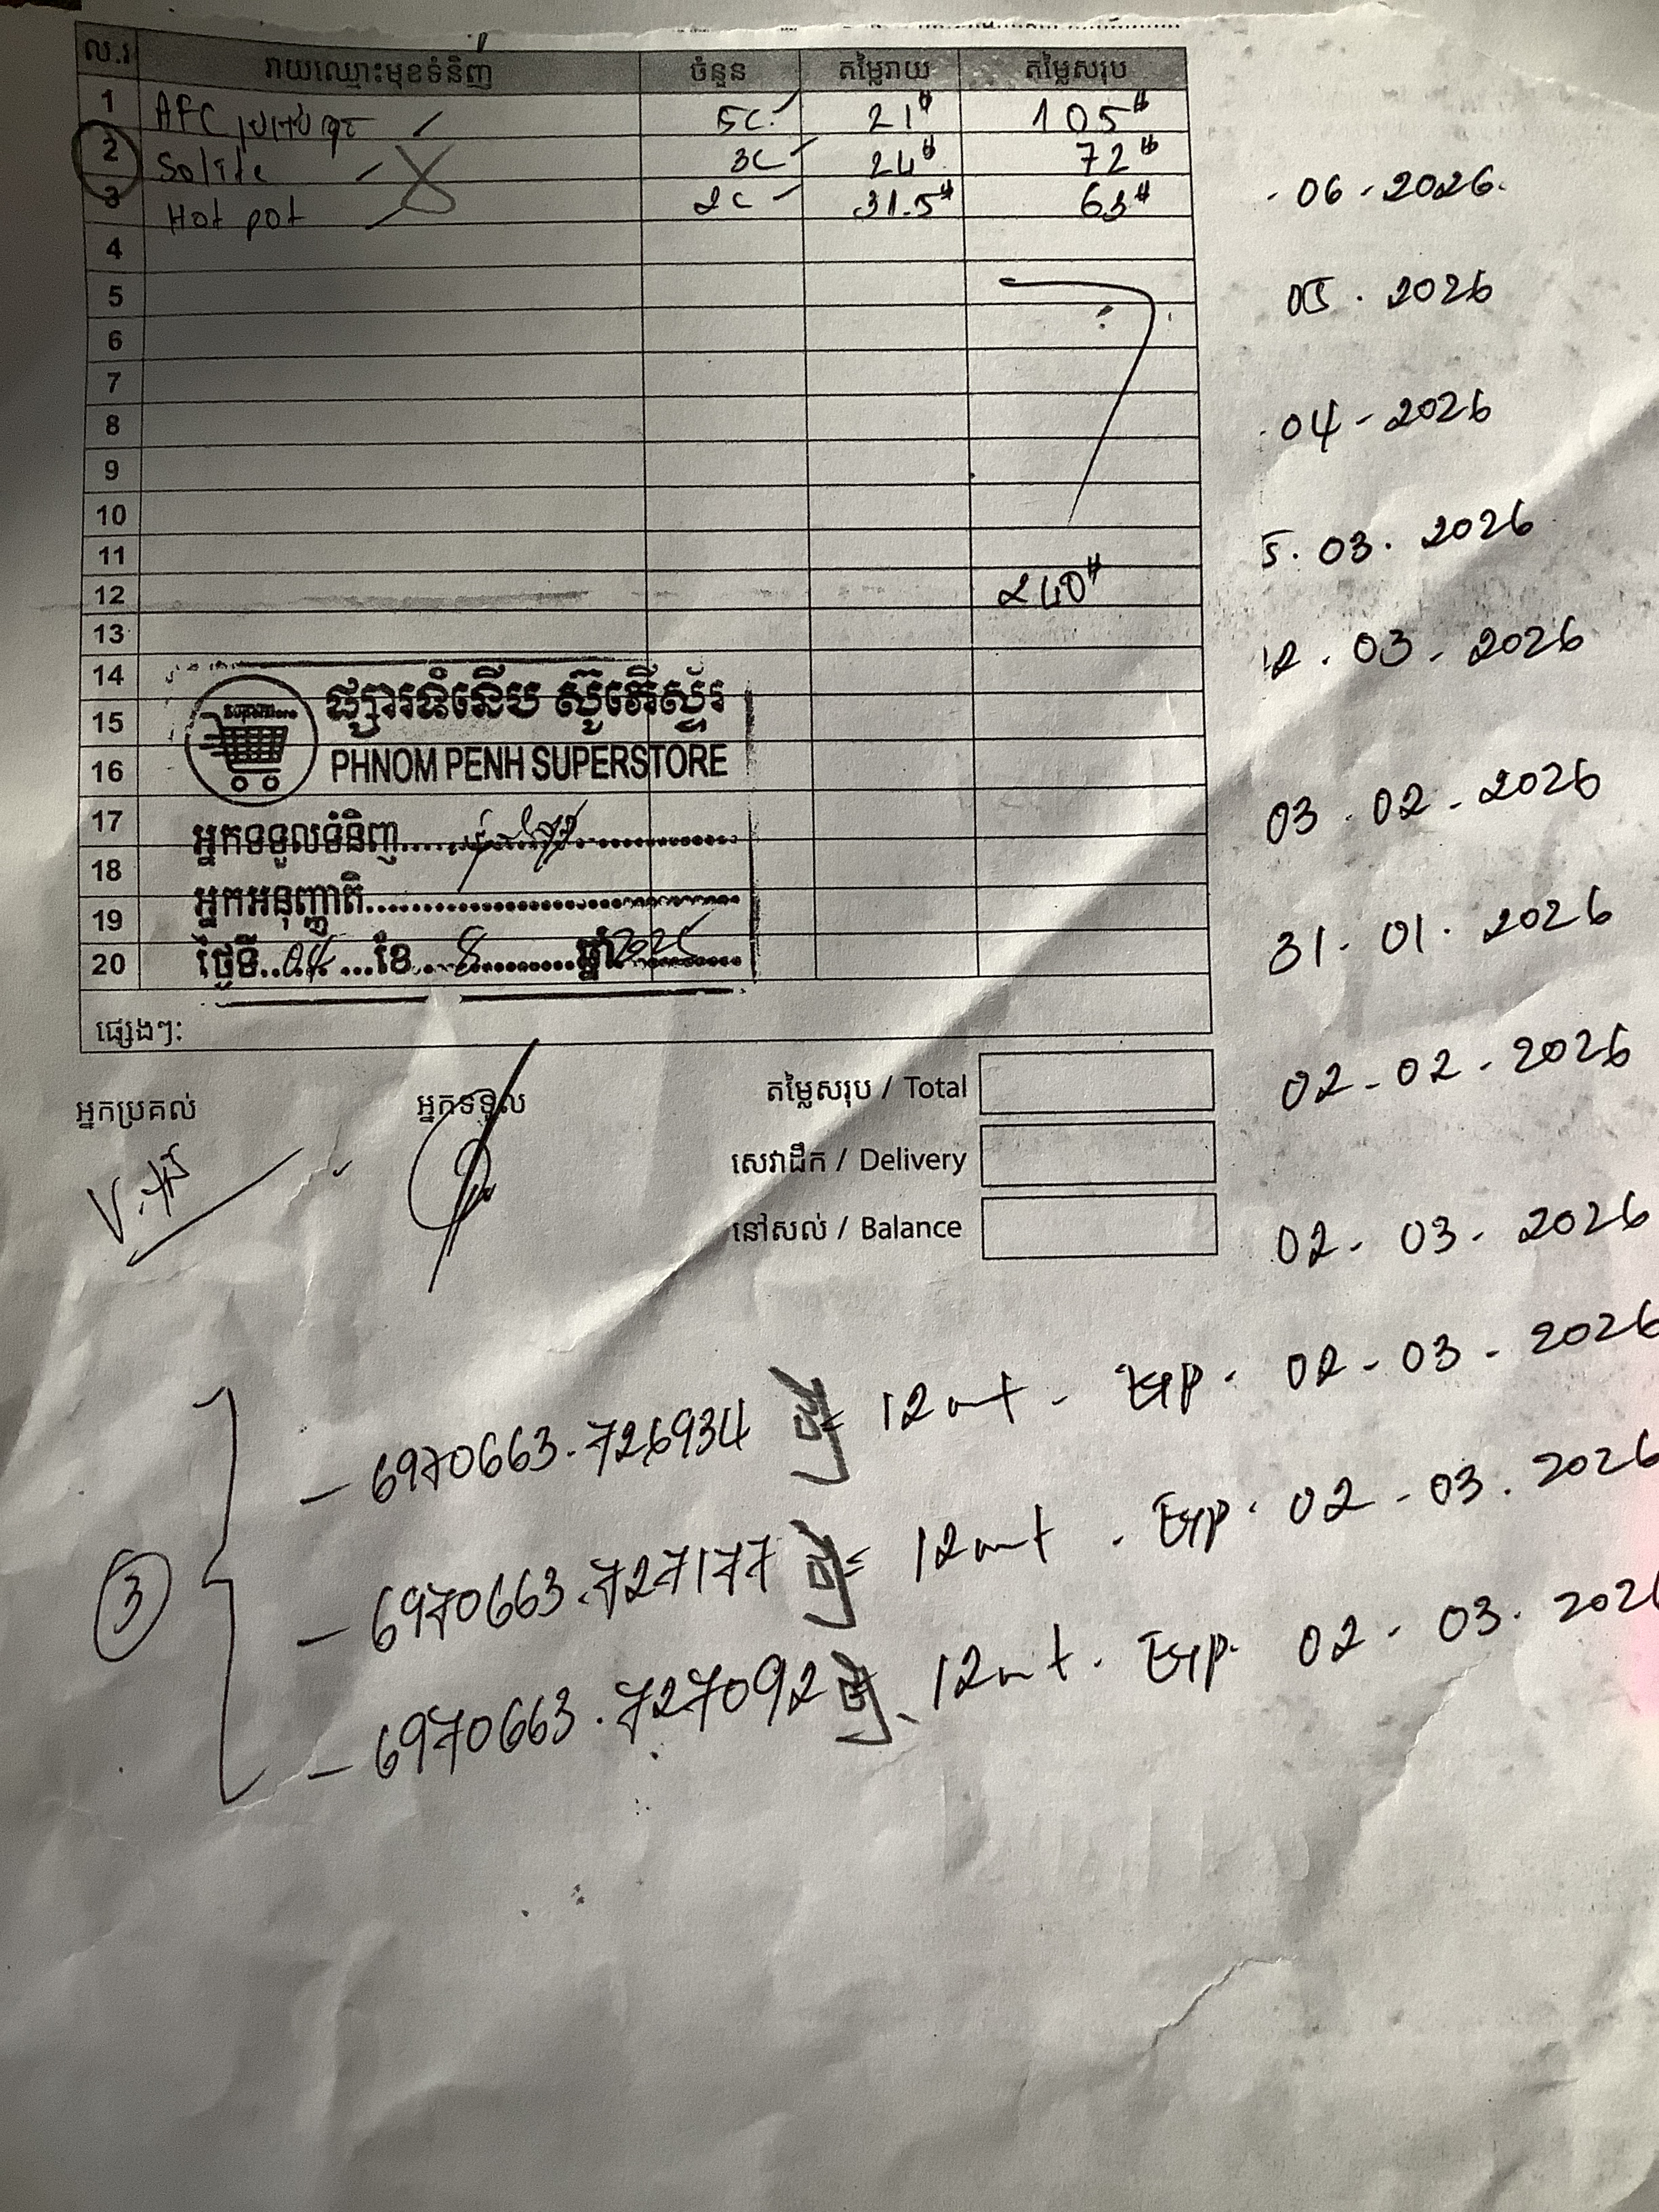 ល.រ រាយឈ្មោះមុខទំនិញ ចំនួន តម្លៃរាយ តម្លៃសរុប
1 AFC 5C 21$ 105$
2 Solite 3C 24$ 72$
3 Hot pot 2C 31.5$ 63$
4
5
6
7
8
9
10
11
12 240$
13
14
15
16
17
18
19
20
06 - 2026
05 . 2026
04 - 2026
5 . 03 . 2026
12 . 03 . 2026
03 . 02 - 2026
31 - 01 . 2026
02 - 02 - 2026
02 - 03 - 2026
Superstore
ផ្សារទំនើប ស៊ូភើស្ទ័រ
PHNOM PENH SUPERSTORE
អ្នកទទួលទំនិញ
អ្នកអនុញ្ញាតិ
ថ្ងៃទី 04 ខែ 8 ឆ្នាំ 2025
ផ្សេងៗ:
អ្នកប្រគល់ អ្នកទទួល
តម្លៃសរុប / Total
សេវាដឹក / Delivery
នៅសល់ / Balance
3
- 6970663.726934 = 12 - Exp. 02 - 03 - 2026
- 6970663.727177 = 12 . Exp. 02 - 03 . 2026
- 6970663.727092 12 . Exp. 02 - 03 . 202